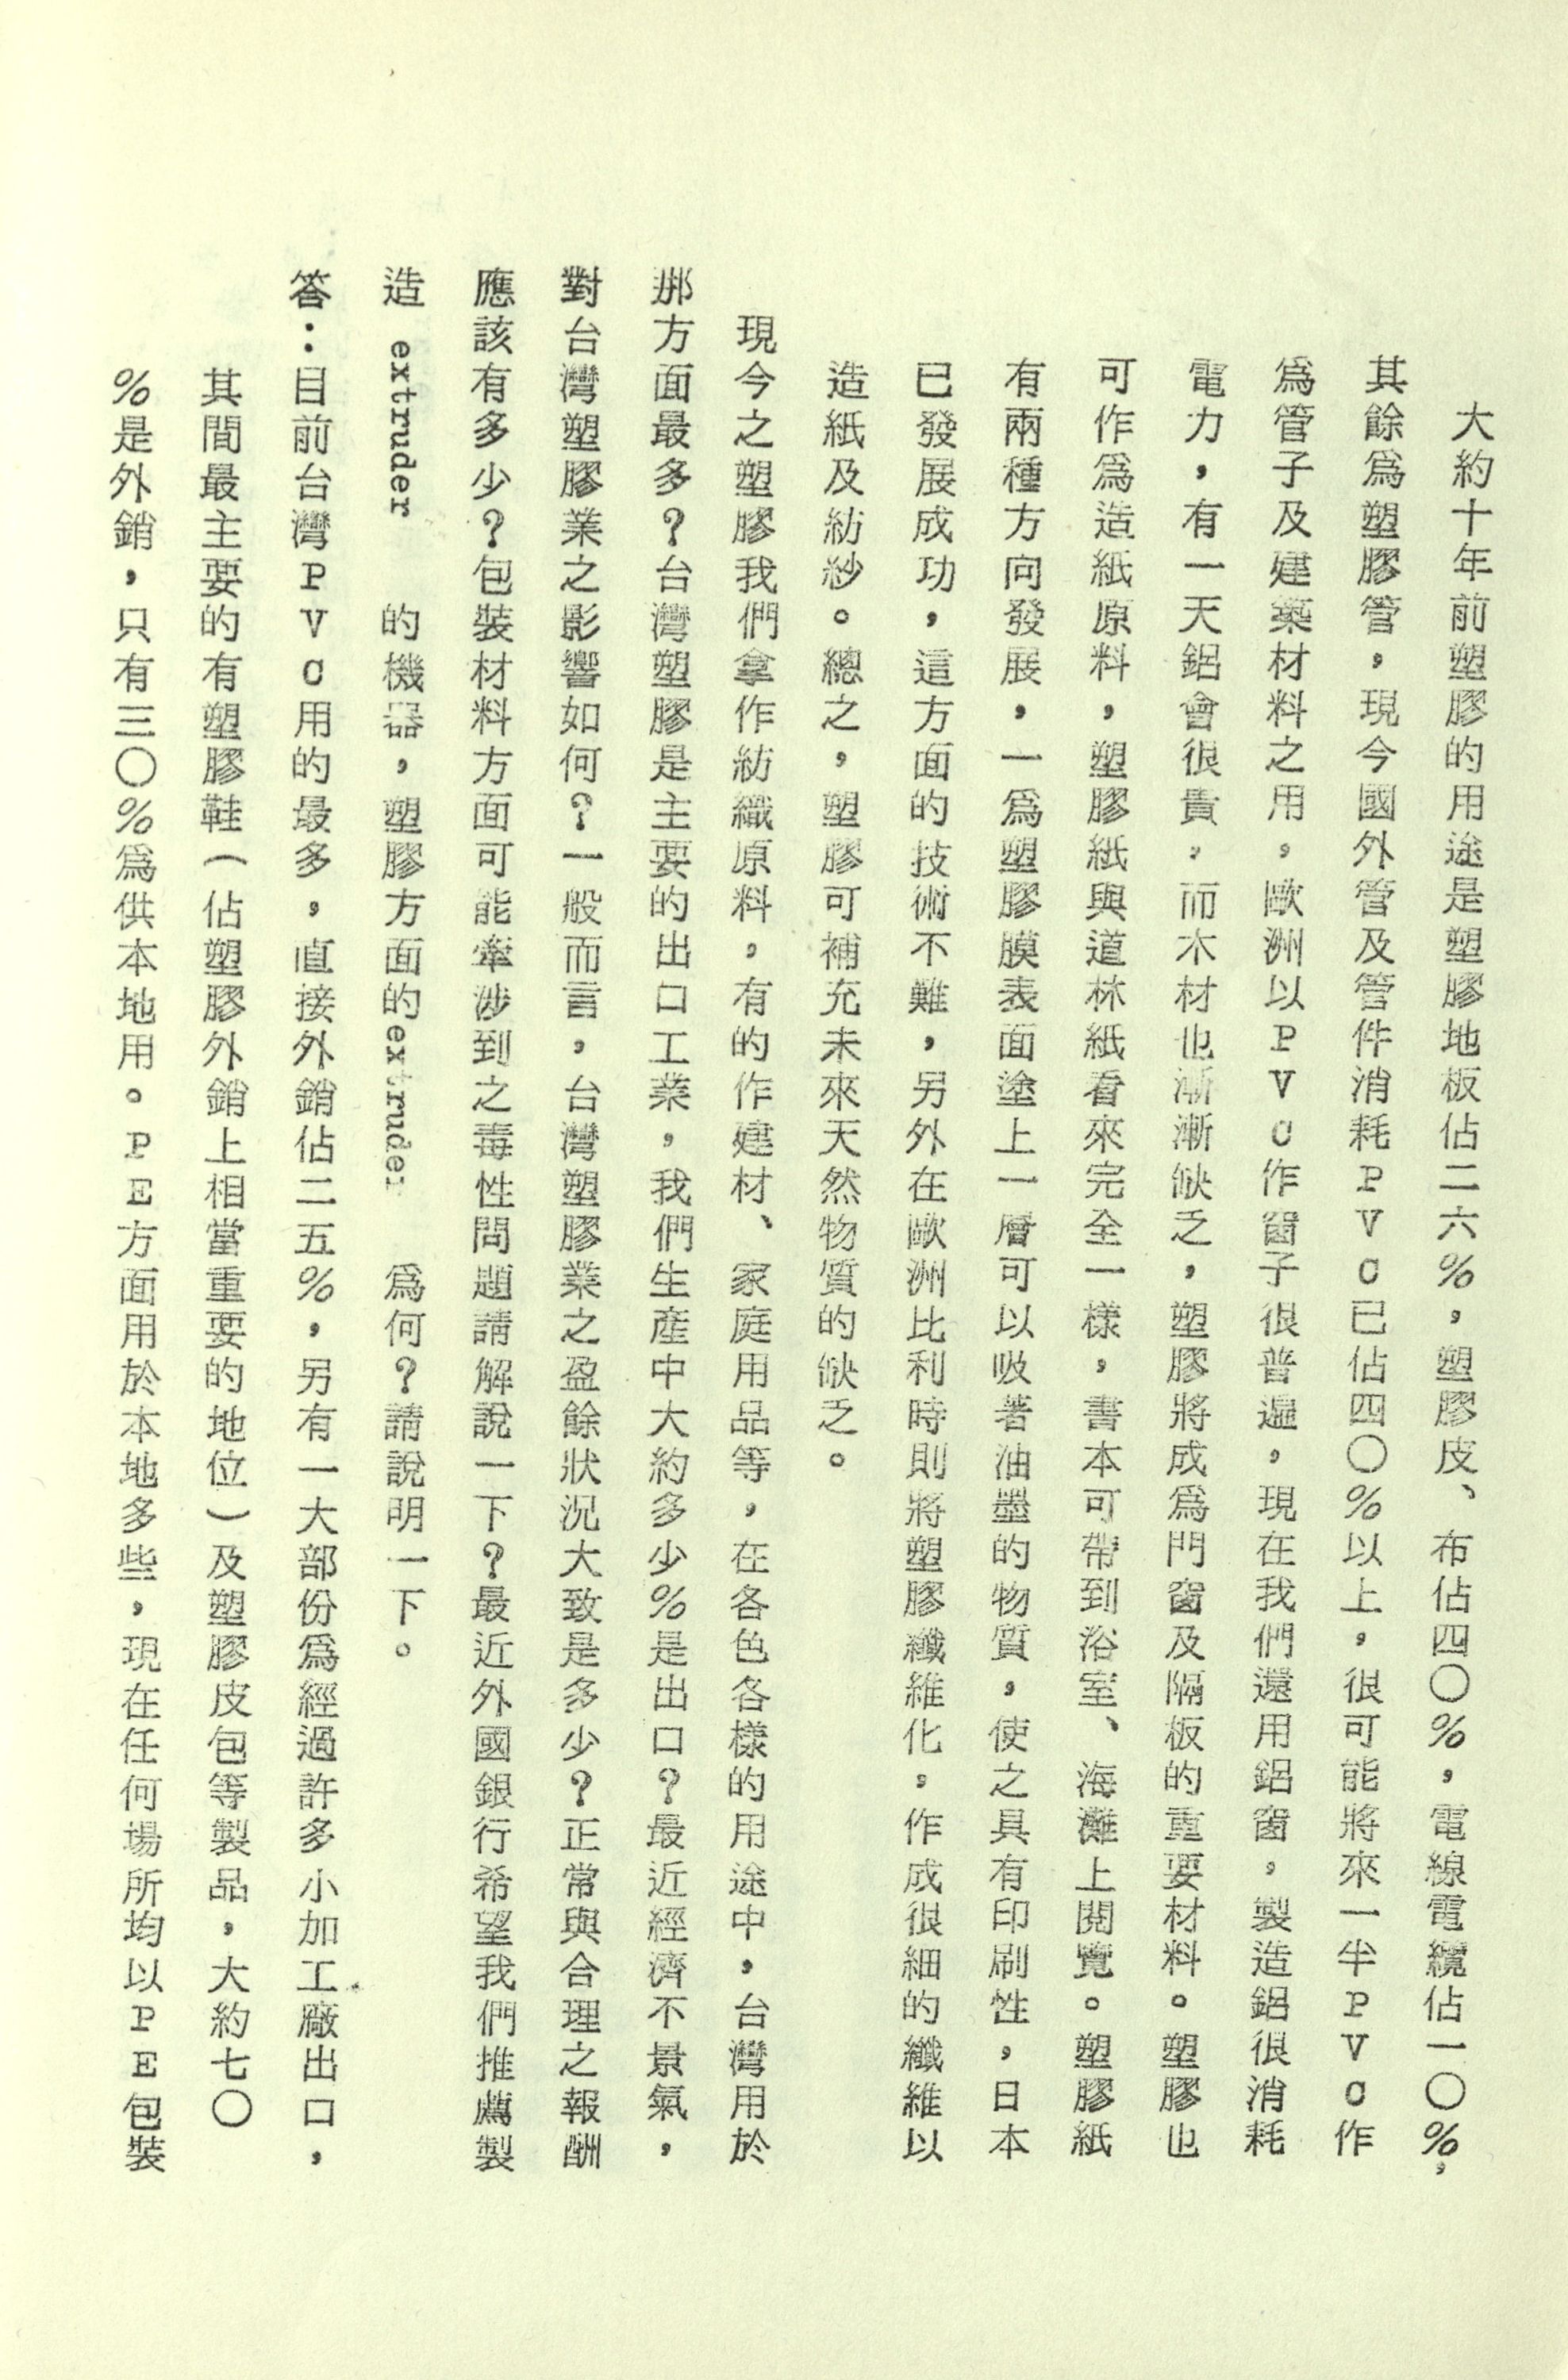 大約十年前塑膠的用途是塑膠地板佔二六%，塑膠皮、布佔四〇%，電線電纜佔一〇%，
其餘爲塑膠管，現今國外管及管件消耗PVC已佔四〇%以上，很可能將來一半PVC作
爲管子及建築材料之用，歐洲以PVC作窗子很普遍，現在我們還用鋁窗，製造鋁很消耗
電力，有一天鋁會很貴，而木材也漸漸缺乏，塑膠將成爲門窗及隔板的重要材料。塑膠也
可作爲造紙原料，塑膠紙與道林紙看來完全一樣，書本可帶到浴室、海灘上閱覽。塑膠紙
有兩種方向發展，一爲塑膠膜表面塗上一層可以吸著油墨的物質，使之具有印刷性，日本
已發展成功，這方面的技術不難，另外在歐洲比利時則將塑膠纖維化，作成很細的纖維以
造紙及紡紗。總之，塑膠可補充未來天然物質的缺乏。
現今之塑膠我們拿作紡織原料，有的作建材、家庭用品等，在各色各樣的用途中，台灣用於
那方面最多？台灣塑膠是主要的出口工業，我們生產中大約多少%是出口？最近經濟不景氣，
對台灣塑膠業之影響如何？一般而言，台灣塑膠業之盈餘狀況大致是多少？正常與合理之報酬
應該有多少？包裝材料方面可能牽涉到之毒性問題請解說一下？最近外國銀行希望我們推薦製
造 extruder 的機器，塑膠方面的extruder 爲何？請說明一下。
答：目前台灣PVC用的最多，直接外銷佔二五%，另有一大部份爲經過許多小加工廠出口，
其間最主要的有塑膠鞋（佔塑膠外銷上相當重要的地位）及塑膠皮包等製品，大約七〇
%是外銷，只有三〇%爲供本地用。PE方面用於本地多些，現在任何場所均以PE包裝